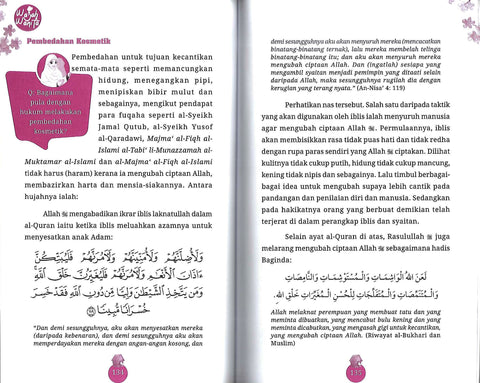 Wajah Wanita
Pembedahan Kosmetik
Q: Bagaimana
pula dengan
hukum melakukan
pembedahan
kosmetik?
Pembedahan untuk tujuan kecantikan
semata-mata seperti memancungkan
hidung, menegangkan pipi,
menipiskan bibir mulut dan
sebagainya, mengikut pendapat
para fuqaha seperti al-Syeikh
Jamal Qutub, al-Syeikh Yusof
al-Qaradawi, Majma' al-Fiqh al-
Islami al-Tabi' li-Munazzamah al-
Muktamar al-Islami dan al-Majma' al-Fiqh al-Islami
tidak harus (haram) kerana ia mengubah ciptaan Allah,
membazirkan harta dan mensia-siakannya. Antara
hujahnya ialah:
Allah ﷻ mengabadikan ikrar iblis laknatullah dalam
al-Quran iaitu ketika iblis meluahkan azamnya untuk
menyesatkan anak Adam:
وَلَأُضِلَّنَّهُمْ وَلَأُمَنِّيَنَّهُمْ وَلَآمُرَنَّهُمْ فَلَيُبَتِّكُنَّ
ءَاذَانَ ٱلْأَنْعَٰمِ وَلَآمُرَنَّهُمْ فَلَيُغَيِّرُنَّ خَلْقَ ٱللَّهِ
وَمَن يَتَّخِذِ ٱلشَّيْطَٰنَ وَلِيًّا مِّن دُونِ ٱللَّهِ فَقَدْ خَسِرَ
خُسْرَانًا مُّبِينًا ١١٩
"Dan demi sesungguhnya, aku akan menyesatkan mereka
(daripada kebenaran), dan demi sesungguhnya aku akan
memperdayakan mereka dengan angan-angan kosong, dan
134
demi sesungguhnya aku akan menyuruh mereka (mencacatkan
binatang-binatang ternak), lalu mereka membelah telinga
binatang-binatang itu; dan aku akan menyuruh mereka
mengubah ciptaan Allah. Dan (ingatlah) sesiapa yang
mengambil syaitan menjadi pemimpin yang ditaati selain
daripada Allah, maka sesungguhnya rugilah dia dengan
kerugian yang terang nyata." (An-Nisa' 4: 119)
Perhatikan nas tersebut. Salah satu daripada taktik
yang akan digunakan oleh iblis ialah menyuruh manusia
agar mengubah ciptaan Allah ﷻ. Permulaannya, iblis
akan membisikkan rasa tidak puas hati dan tidak redha
dengan rupa paras sendiri yang Allah ﷻ ciptakan. Dilihat
kulitnya tidak cukup putih, hidung tidak cukup mancung,
kening tidak nipis dan sebagainya. Lalu timbul berbagai-
bagai idea untuk mengubah supaya lebih cantik pada
pandangan dan penilaian diri dan manusia. Sedangkan
pada hakikatnya orang yang berbuat demikian telah
terjerat di dalam perangkap iblis dan syaitan.
Selain ayat al-Quran di atas, Rasulullah ﷺ juga
melarang mengubah ciptaan Allah ﷻ sebagaimana hadis
Baginda:
لَعَنَ اللَّهُ الْوَاشِمَاتِ وَالْمُسْتَوْشِمَاتِ وَالنَّامِصَاتِ
وَالْمُتَنَمِّصَاتِ وَالْمُتَفَلِّجَاتِ لِلْحُسْنِ الْمُغَيِّرَاتِ خَلْقَ اللهِ.
Allah melaknat perempuan yang membuat tatu dan yang
meminta dibuatkan, yang mencabut bulu kening dan yang
meminta dicabutkan, yang mengasah gigi untuk kecantikan,
yang mengubah ciptaan Allah." (Riwayat al-Bukhari dan
Muslim)
135